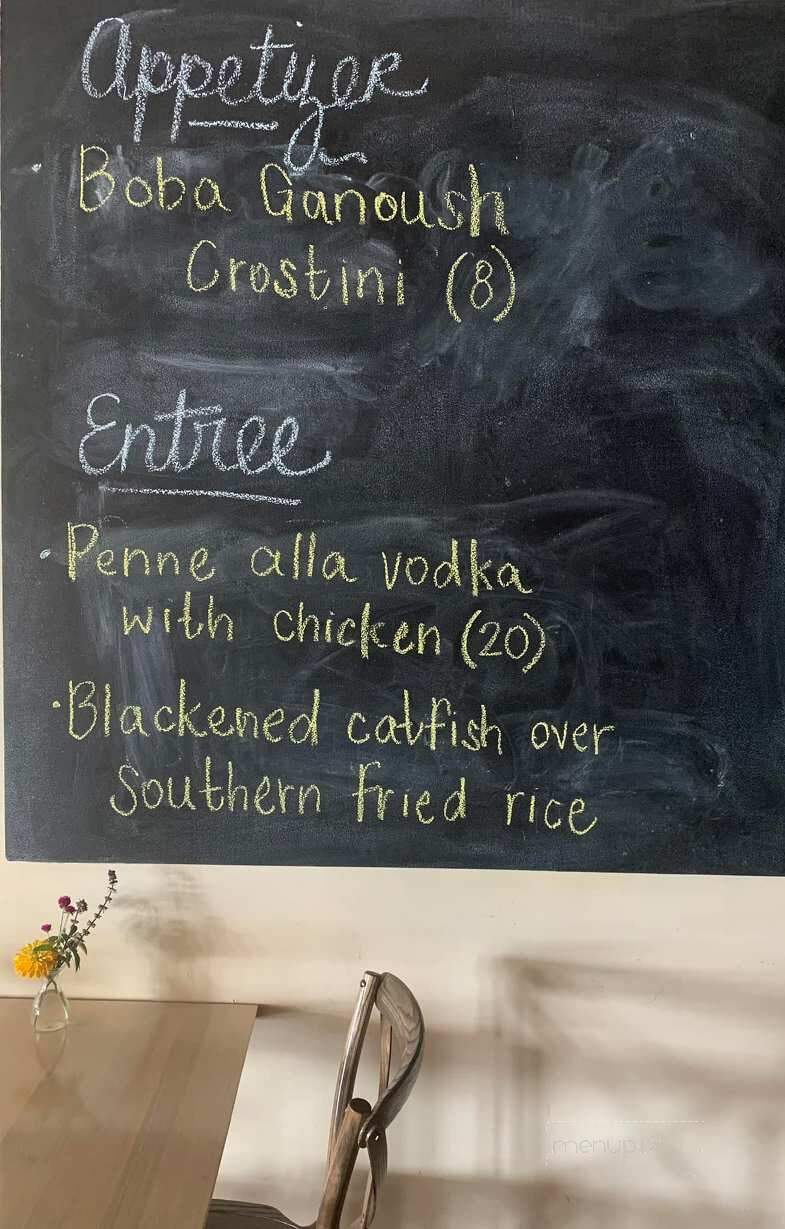 Appetizer
Boba Ganoush
Crostini (8)
Entree
Penne alla vodka
with chicken (20)
Blackened catfish over
Southern fried rice